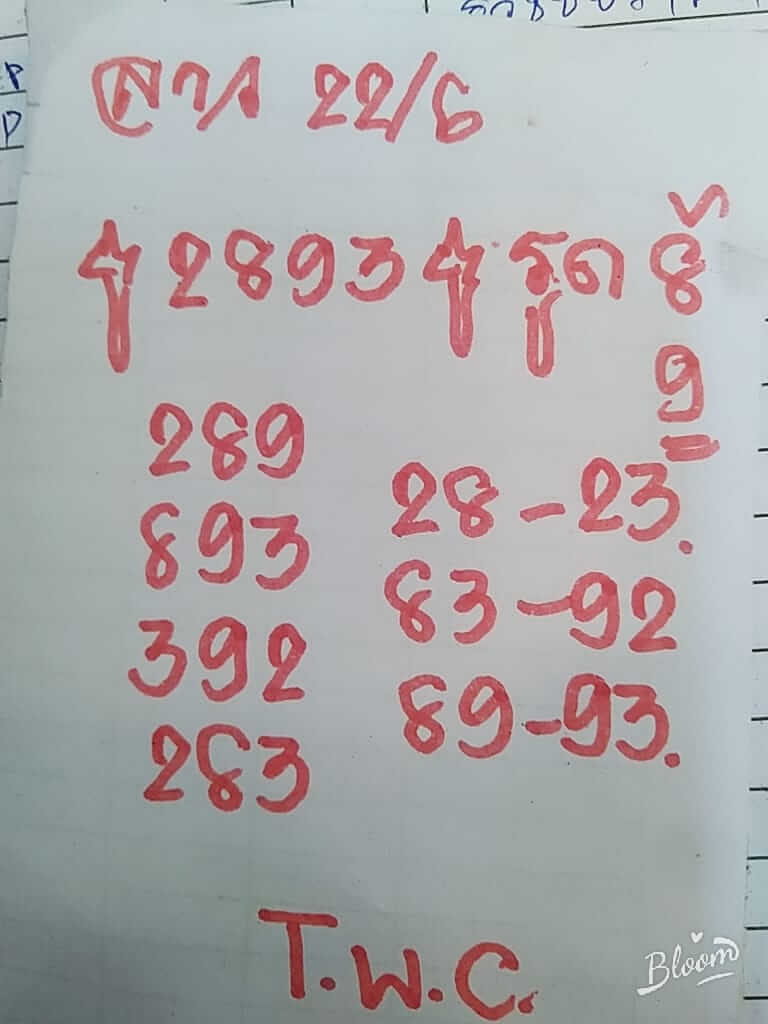 ลาว 22/6
2893 รูด 8
9
289
28-23.
893
83-92
392
89-93.
283
T.W.C.
Bloom